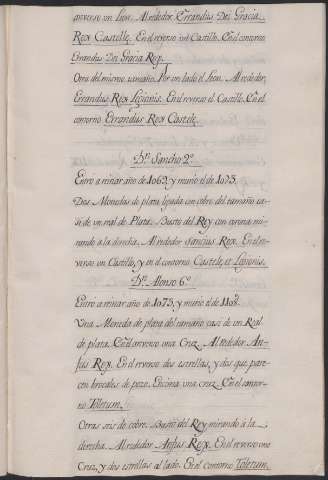 anverso un Leon. Alrededor. Errandus Dei Gracia
Rex Castelle. En el reverso un Castillo. En el contorno
Errandus Dei Gracia Rex.
Otra del mismo tamaño. Por un lado el Leon. Alrededor,
Errandus Rex Legionis. En el reverso el Castillo. En el
contorno Errandus Rex Castele.
Dn. Sancho 2º.
Entró a reinar año de 1065, y murió el de 1073.
Dos Monedas de plata ligada con cobre del tamaño ca-
si de un real de Plata. Busto del Rey con corona mi-
rando à la derecha. Alrededor Sancius Rex. En el re-
verso un Castillo, y en el contorno Castele, et Legionis.
Dn. Alonso 6º.
Entró a reinar año de 1073, y murió el de
Una Moneda de plata del tamaño casi de un Real
de plata. En el anverso una Cruz. Alrededor An-
fus Rex. En el reverso dos estrellas, y dos que pare-
cen brocales de pozo. Encima una cruz. En el contor-
no Toletum.
Otras seis de cobre. Busto del Rey mirando à la
derecha. Alrededor Anfus Rex. En el reverso una
Cruz, y dos estrellas al lado. En el contorno Toletum.